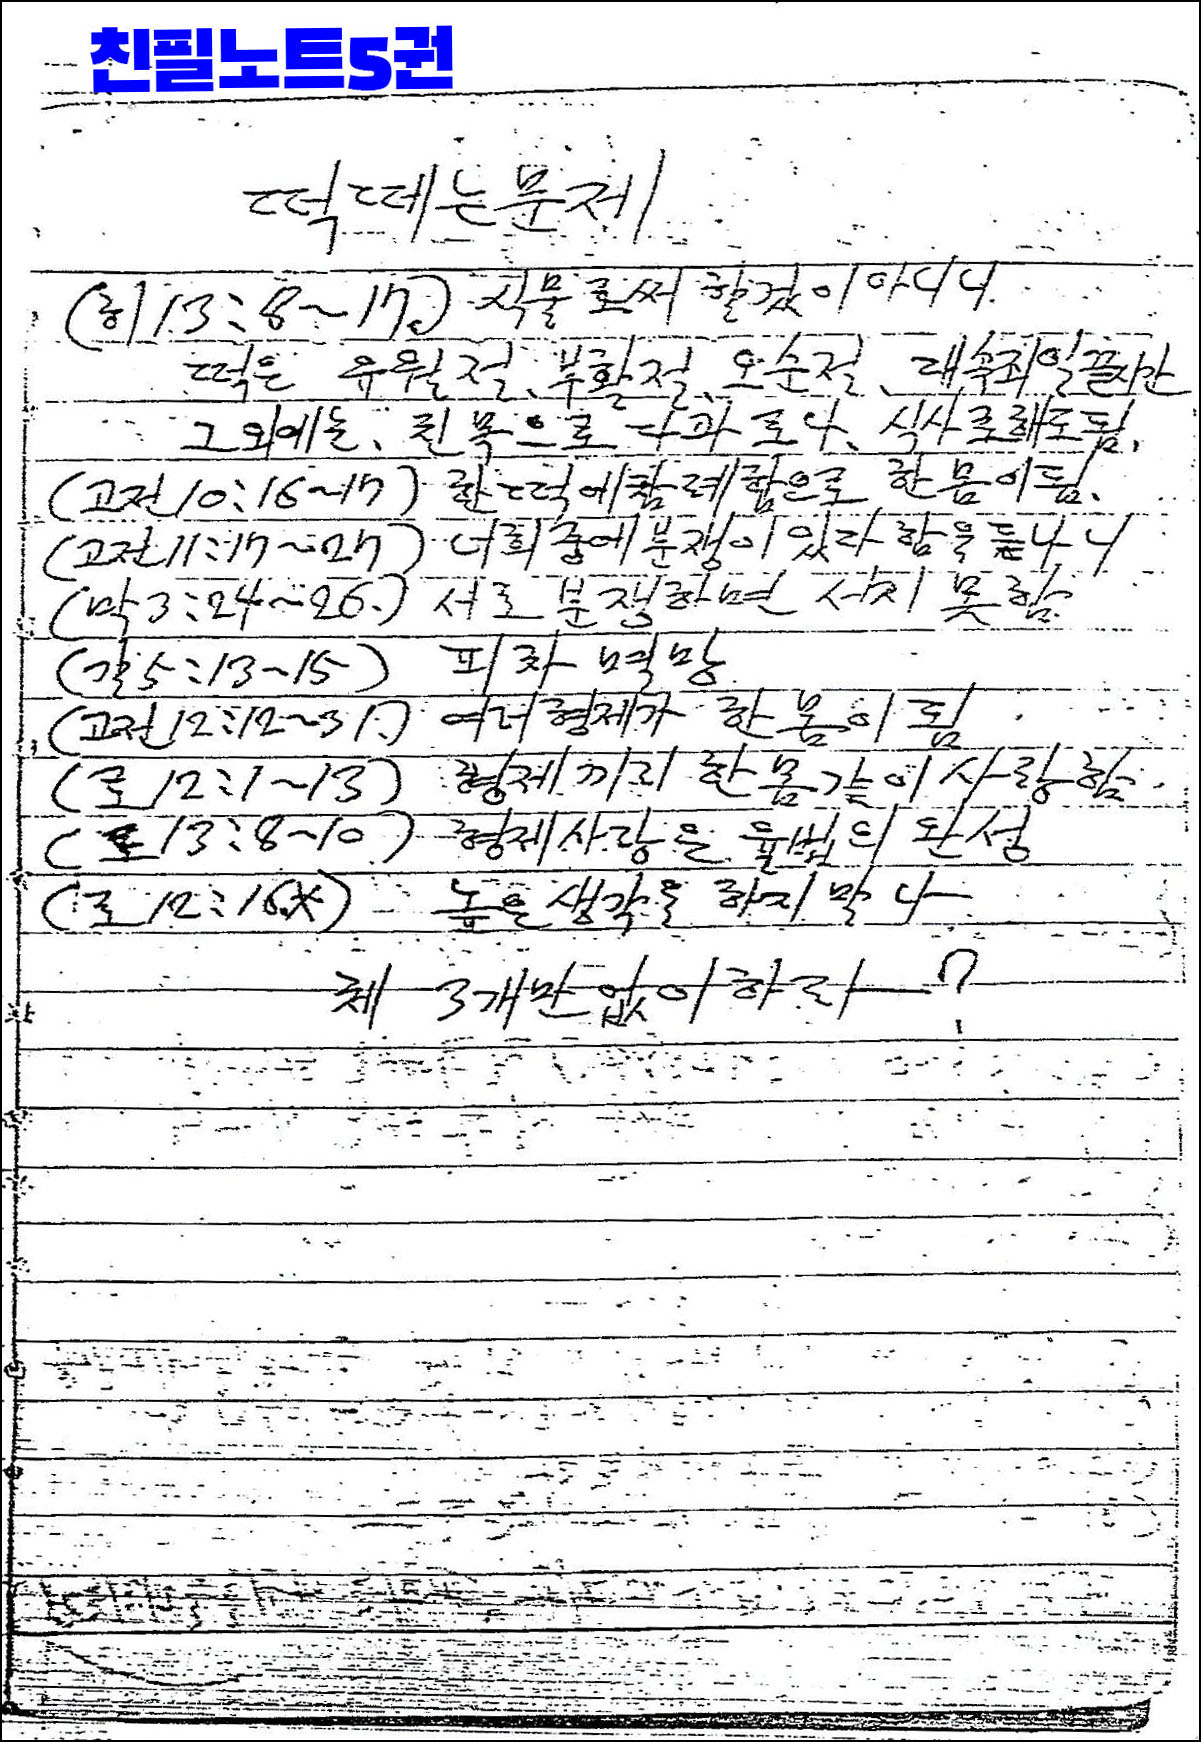 친필노트5권
떡떼는문제
(히 13:8~17.) 식물로써 할것이 아니니
떡은 유월절、부활절、오순절、대속죄일끝시간
그외에는、친목으로 다과로나、식사로해도됨、
(고전10:16~17) 한떡에참례함으로 한몸이됨、
(고전11:17~27) 너희중에분쟁이있다함을듣나니
(막3:24~26.) 서로 분쟁하면 서지 못함.
(갈5:13~15) 피차 멸망
(고전12:12~31.) 여러형제가 한몸이됨
(로12:1~13) 형제끼리 한몸같이사랑함.
(로13:8~10.) 형제사랑은 율법의 완성
(로12:16.*) 높은생각을 하지말나
체 3개만없이하라 ?